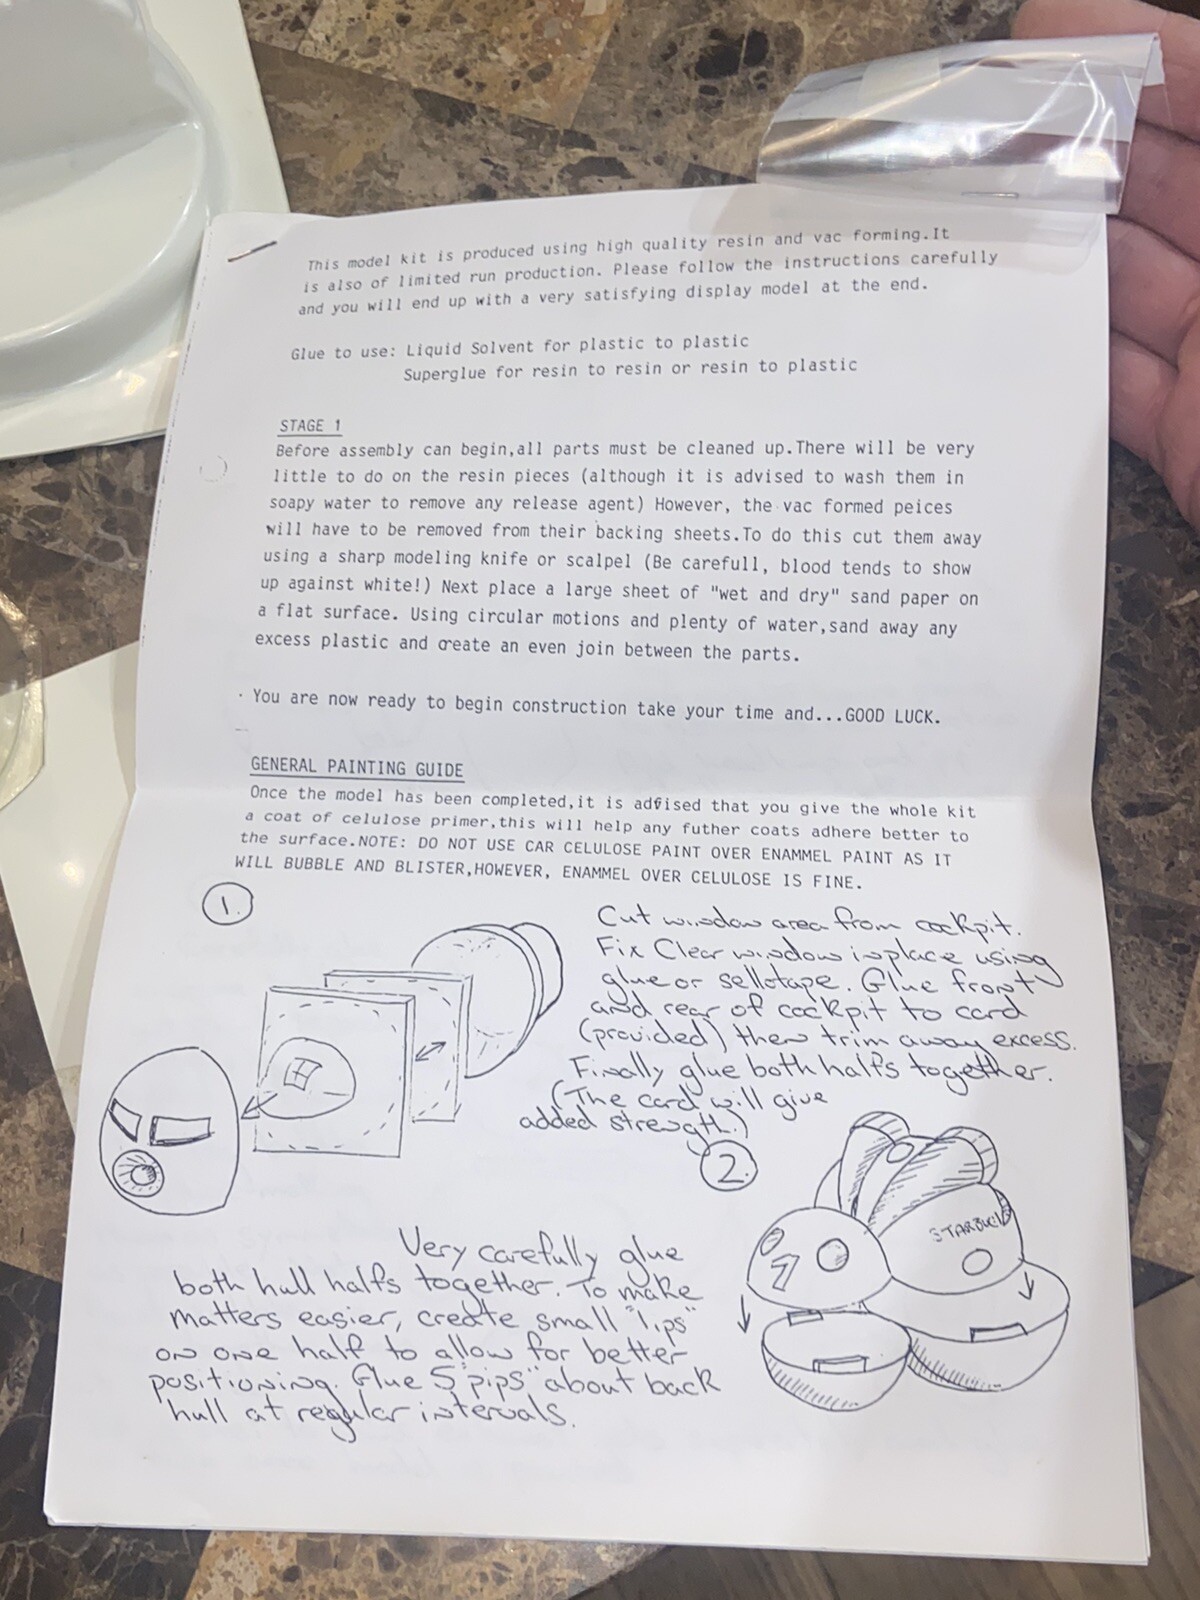 This model kit is produced using high quality resin and vac forming.It
is also of limited run production. Please follow the instructions carefully
and you will end up with a very satisfying display model at the end.
Glue to use: Liquid Solvent for plastic to plastic
Superglue for resin to resin or resin to plastic
STAGE 1
Before assembly can begin,all parts must be cleaned up.There will be very
little to do on the resin pieces (although it is advised to wash them in
soapy water to remove any release agent) However, the vac formed peices
will have to be removed from their backing sheets.To do this cut them away
using a sharp modeling knife or scalpel (Be carefull, blood tends to show
up against white!) Next place a large sheet of "wet and dry" sand paper on
a flat surface. Using circular motions and plenty of water,sand away any
excess plastic and create an even join between the parts.
You are now ready to begin construction take your time and...GOOD LUCK.
GENERAL PAINTING GUIDE
Once the model has been completed,it is advised that you give the whole kit
a coat of celulose primer,this will help any futher coats adhere better to
the surface.NOTE: DO NOT USE CAR CELULOSE PAINT OVER ENAMMEL PAINT AS IT
WILL BUBBLE AND BLISTER,HOWEVER, ENAMMEL OVER CELULOSE IS FINE.
1.
Cut window area from cockpit.
Fix Clear window inplace using
glue or sellotape. Glue front
and rear of cockpit to card
(provided) then trim away excess.
Finally glue both halfs together.
(The card will give
added strength.)
2.
STARBUG
Very carefully glue
both hull halfs together. To make
matters easier, create small "lips"
on one half to allow for better
positioning. Glue 5 "pips" about back
hull at regular intervals.